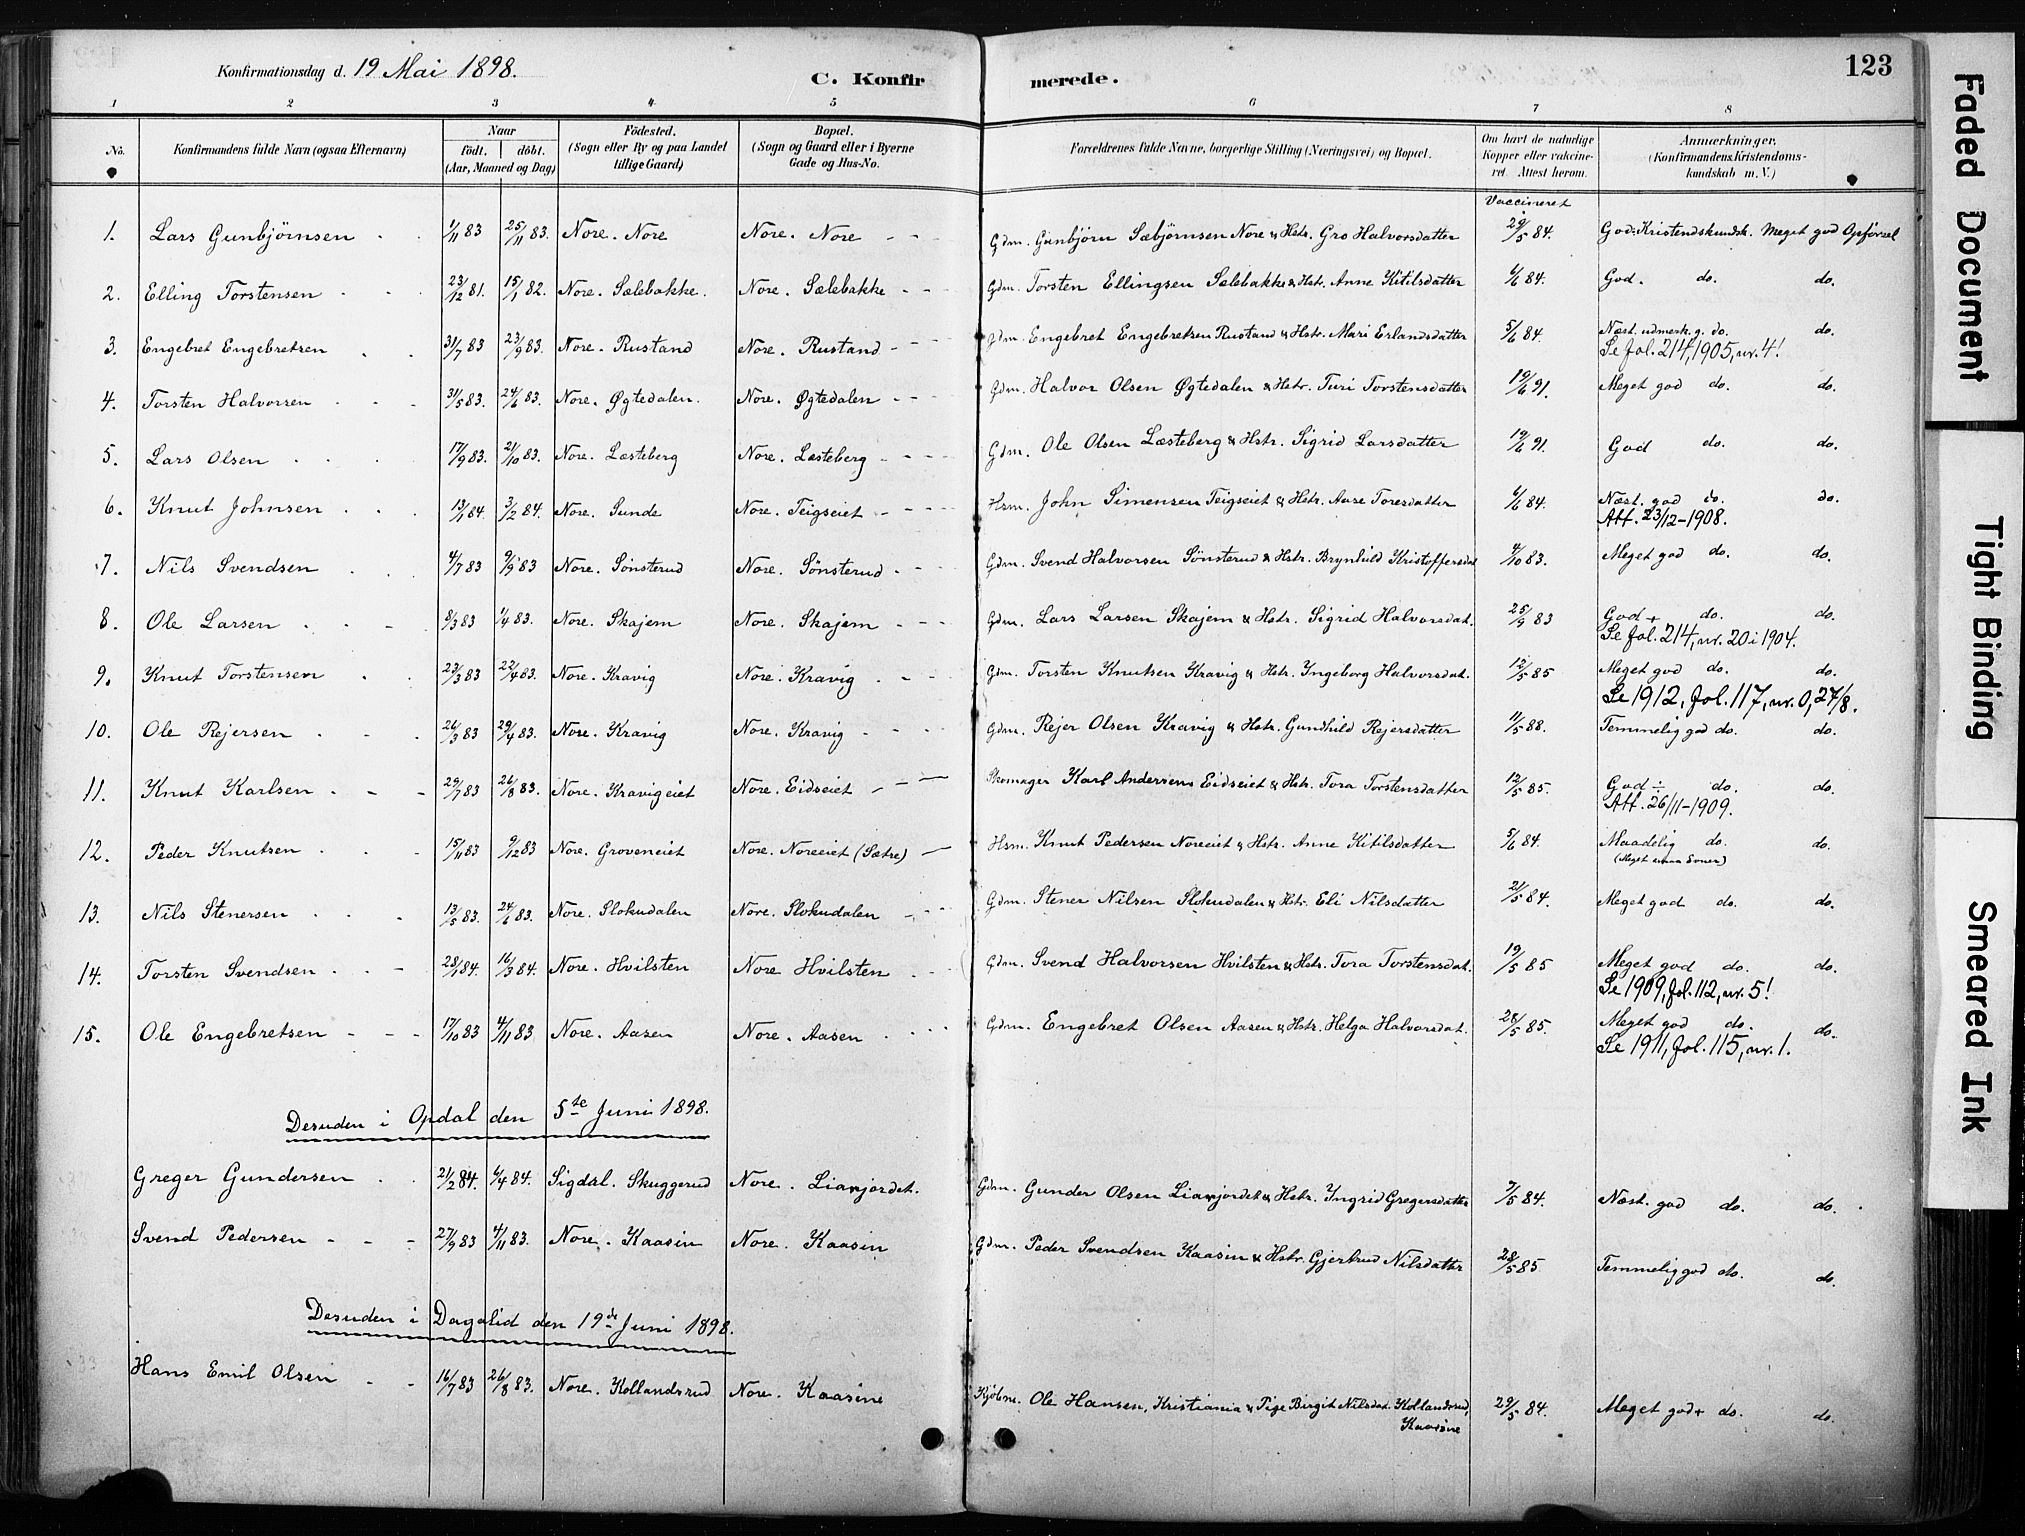 Konfirmationsdag d. 19 Mai 1898.
C. Konfirmerede.
123
1 2 3 4 5 6 7 8
No.
Konfirmandens fulde Navn (ogsaa Efternavn)
Naar
født. døbt.
(Aar, Maaned og Dag)
Fødested.
(Sogn eller By og paa Landet
tillige Gaard)
Bopæl.
(Sogn og Gaard eller i Byerne
Gade og Hus-No.
Forældrenes fulde Navne, borgerlige Stilling (Næringsvei) og Bopæl.
Om havt de naturlige
Kopper eller vakcine-
ret. Attest herom.
Anmærkninger.
(Konfirmandens Kristendoms-
kundskab m. V.)
Vaccineret
1. Lars Gunbjørnsen 1/11 83 25/11 83. Nore. Nore Nore. Nore Gdm. Gunbjørn Sæbjørnsen Nore & Hstr. Gro Halvorsdatter 29/5 84. God Kristendskundsk. Meget god Opførsel
2. Elling Torstensen 23/12 81. 15/1 82. Nore. Sælebakke. Nore. Sælebakke Gdm. Torsten Ellingsen Sælebakke & Hstr. Anne Kitilsdatter 6/6 84. God. do. do.
3. Engebret Engebretsen 31/7 83 23/9 83. Nore. Rustand Nore. Rustand Gdm. Engebret Engebretsen Rustand & Hstr. Mari Erlandsdatter 5/6 84. Næst. udmerk. g. do. do.
Se fol. 214, 1905, nr. 4!
4. Torsten Halvorsen 31/5 83. 24/6 83. Nore. Øgtedalen. Nore. Øgtedalen Gdm. Halvor Olsen Øgtedalen & Hstr. Turi Torstensdatter 19/6 91. Meget god do. do.
5. Lars Olsen 17/9 83. 21/10 83. Nore. Læsteberg Nore. Læsteberg Gdm. Ole Olsen Læsteberg & Hstr. Sigrid Larsdatter 19/6 91. God do. do.
6. Knut Johnsen 13/1 84. 3/2 84. Nore. Sunde Nore. Teigseiet Hsm. John Simensen Teigseiet & Hstr. Aase Toresdatter 6/6 84. Næst. god do. do.
Att. 23/12-1908.
7. Nils Svendsen 4/7 83 9/9 83 Nore. Sønsterud Nore. Sønsterud Gdm. Svend Halvorsen Sønsterud & Hstr. Brynhild Kristoffersdat 4/10 83. Meget god do. do.
8. Ole Larsen 8/3 83 1/4 83. Nore. Skajem Nore. Skajem Gdm. Lars Larsen Skajem & Hstr. Sigrid Halvorsdat. 25/9 83 God + do. do.
Se fol. 214, nr. 20 i 1904.
9. Knut Torstensen 23/3 83 22/4 83. Nore. Kravig Nore. Kravig Gdm. Torsten Knutsen Kravig & Hstr. Ingeborg Halvorsdat. 12/5 85 Meget god do. do.
Se 1912, fol. 117, nr. 0, 27/8.
10. Ole Rejersen 26/3 83 29/4 83. Nore. Kravig Nore. Kravig Gdm. Rejer Olsen Kravig & Hstr. Gundhild Rejersdatter 11/5 88. Temmelig god do. do.
11. Knut Karlsen 29/7 83 26/8 83. Nore. Kravigeiet Nore. Eidseiet Skomager Karl Andersen Eidseiet & Hstr. Tora Torstensdatter 12/5 85. God ÷ do. do.
Att. 26/11-1909.
12. Peder Knutsen 15/11 83 9/12 83 Nore. Groveneiet Nore. Noreeiet (Sætre) Hsm. Knut Pedersen Noreeiet & Hstr. Anne Kitilsdatter 5/6 84. Maadelig do. do.
(Meget smaa Evner)
13. Nils Stenersen 13/5 83. 24/6 83. Nore. Slokudalen Nore. Slokudalen Gdm. Stener Nilsen Slokudalen & Hstr. Eli Nilsdatter 21/5 84. Meget god do. do.
14. Torsten Svendsen 28/1 84. 16/3 84. Nore. Hvilsten Nore Hvilsten Gdm. Svend Halvorsen Hvilsten & Hstr. Tora Torstensdat. 19/5 85 Meget god do. do.
Se 1909, fol. 112, nr. 5!
15. Ole Engebretsen 17/10 83 4/11 83 Nore. Aasen Nore. Aasen Gdm. Engebret Olsen Aasen & Hstr. Helga Halvorsdat. 28/5 85. Meget god do. do.
Se 1911, fol. 115, nr. 1.
Desuden i Opdal den 5te Juni 1898.
Greger Gundersen 21/2 84. 6/4 84. Sigdal. Skuggerud Nore. Liavjordet. Gdm. Gunder Olsen Liavjordet & Hstr. Yngrid Gregersdatter 7/5 84. Næst. god do. do.
Svend Pedersen 27/9 83 4/11 83. Nore. Kaasin Nore. Kaasin Gdm. Peder Svendsen Kaasin & Hstr. Gjertrud Nilsdatter 28/5 85. Temmelig god do. do.
Desuden i Dagalid den 19de Juni 1898.
Hans Emil Olsen 16/7 83 26/8 83. Nore. Kollandsrud Nore. Kaasine Kjøbm. Ole Hansen, Kristiania & Pige Birgit Nilsdat. Kollandsrud, 29/5 84. Meget god + do. do.
Kaasine
Faded Document
Tight Binding
Smeared Ink